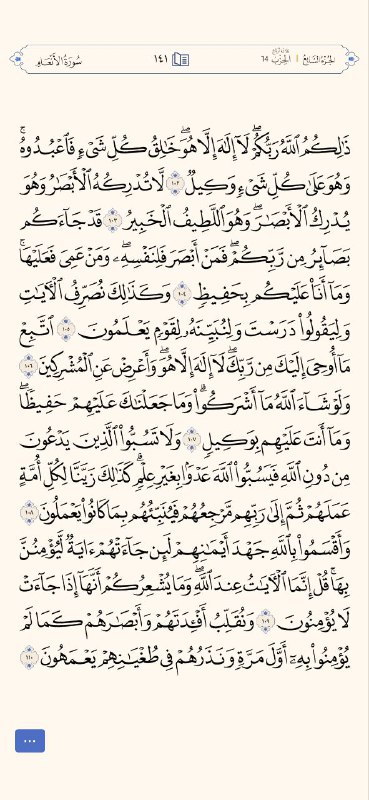 سُورَةُ الأَنْعَامِ
١٤١
الجُزءُ السَّابِعُ الحِزْبُ ١٤
ذَٰلِكُمُ ٱللَّهُ رَبُّكُمْۖ لَآ إِلَٰهَ إِلَّا هُوَۖ خَٰلِقُ كُلِّ شَىْءٍ فَٱعْبُدُوهُۚ
وَهُوَ عَلَىٰ كُلِّ شَىْءٍ وَكِيلٌ ١٠٢ لَّا تُدْرِكُهُ ٱلْأَبْصَٰرُ وَهُوَ
يُدْرِكُ ٱلْأَبْصَٰرَۖ وَهُوَ ٱللَّطِيفُ ٱلْخَبِيرُ ١٠٣ قَدْ جَآءَكُم
بَصَآئِرُ مِن رَّبِّكُمْۖ فَمَنْ أَبْصَرَ فَلِنَفْسِهِۦۖ وَمَنْ عَمِىَ فَعَلَيْهَاۚ
وَمَآ أَنَا۠ عَلَيْكُم بِحَفِيظٍ ١٠٤ وَكَذَٰلِكَ نُصَرِّفُ ٱلْءَايَٰتِ
وَلِيَقُولُوا۟ دَرَسْتَ وَلِنُبَيِّنَهُۥ لِقَوْمٍ يَعْلَمُونَ ١٠٥ ٱتَّبِعْ
مَآ أُوحِىَ إِلَيْكَ مِن رَّبِّكَۖ لَآ إِلَٰهَ إِلَّا هُوَۖ وَأَعْرِضْ عَنِ ٱلْمُشْرِكِينَ ١٠٦
وَلَوْ شَآءَ ٱللَّهُ مَآ أَشْرَكُوا۟ۗ وَمَا جَعَلْنَٰكَ عَلَيْهِمْ حَفِيظًاۖ
وَمَآ أَنتَ عَلَيْهِم بِوَكِيلٍ ١٠٧ وَلَا تَسُبُّوا۟ ٱلَّذِينَ يَدْعُونَ
مِن دُونِ ٱللَّهِ فَيَسُبُّوا۟ ٱللَّهَ عَدْوًۢا بِغَيْرِ عِلْمٍۗ كَذَٰلِكَ زَيَّنَّا لِكُلِّ أُمَّةٍ
عَمَلَهُمْ ثُمَّ إِلَىٰ رَبِّهِم مَّرْجِعُهُمْ فَيُنَبِّئُهُم بِمَا كَانُوا۟ يَعْمَلُونَ ١٠٨
وَأَقْسَمُوا۟ بِٱللَّهِ جَهْدَ أَيْمَٰنِهِمْ لَئِن جَآءَتْهُمْ ءَايَةٌ لَّيُؤْمِنُنَّ
بِهَاۚ قُلْ إِنَّمَا ٱلْءَايَٰتُ عِندَ ٱللَّهِۖ وَمَا يُشْعِرُكُمْ أَنَّهَآ إِذَا جَآءَتْ
لَا يُؤْمِنُونَ ١٠٩ وَنُقَلِّبُ أَفْـِٔدَتَهُمْ وَأَبْصَٰرَهُمْ كَمَا لَمْ
يُؤْمِنُوا۟ بِهِۦٓ أَوَّلَ مَرَّةٍ وَنَذَرُهُمْ فِى طُغْيَٰنِهِمْ يَعْمَهُونَ ١١٠